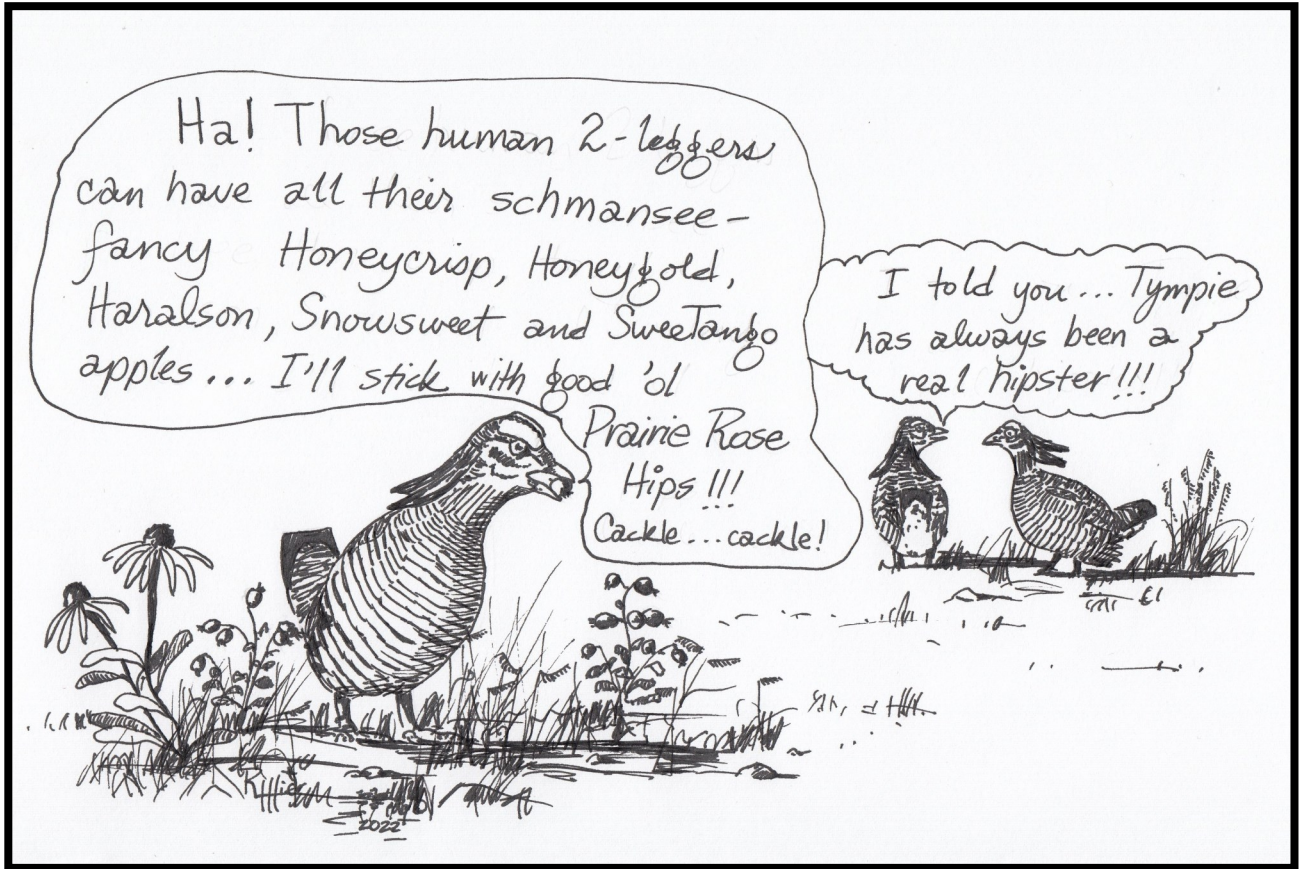 Ha! Those human 2-leggers
can have all their schmansee-
fancy Honeycrisp, Honeygold,
Haralson, Snowsweet and SweeTango
apples... I'll stick with good 'ol
Prairie Rose
Hips !!!
Cackle...cackle!
I told you... Tympie
has always been a
real hipster!!!
2022